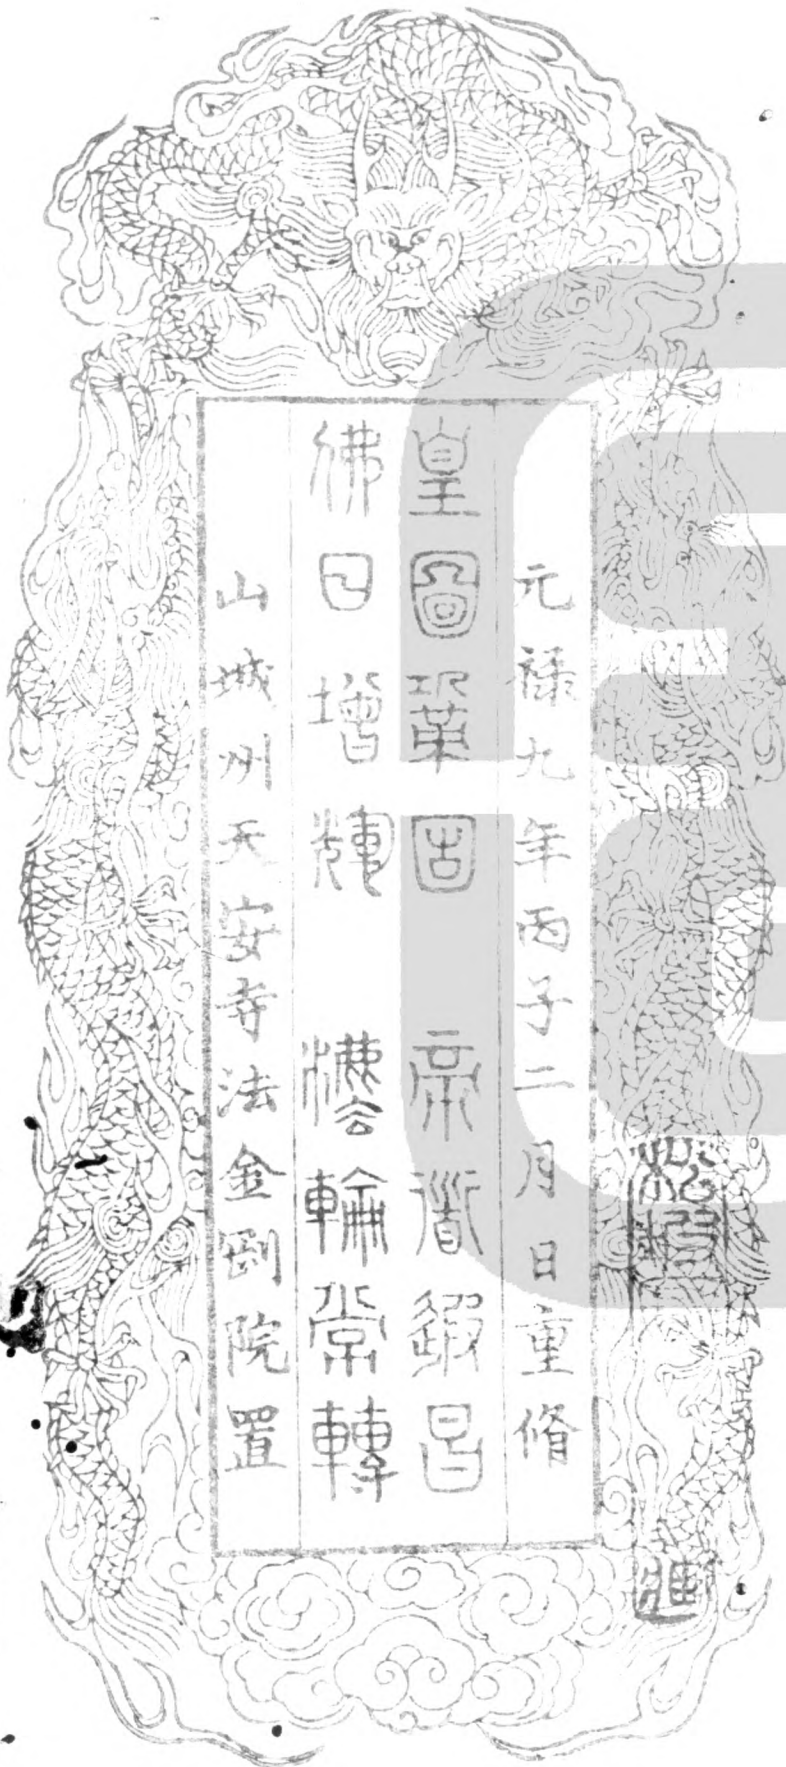 元禄九年丙子二月日重脩
皇圖鞏固　帝道遐昌
佛日增輝　灋輪常轉
山城州天安寺法金剛院置
進